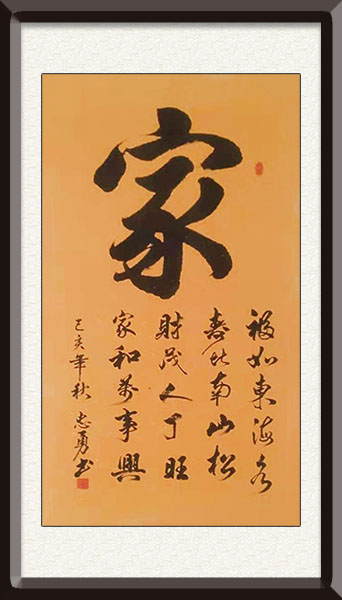 家
福如東海水
壽比南山松
財茂人丁旺
家和萬事興
己亥年秋 志勇書